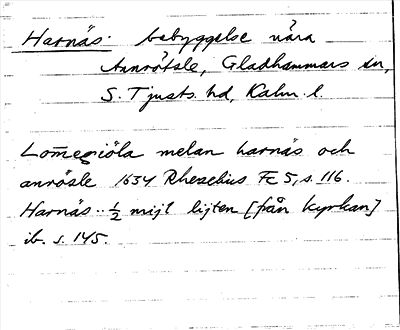 Harnäs. bebyggelse nära
Anråtsle, Gladhammars sn,
S. Tjusts hd, Kalm. l.
Lom̅egiöla melan harnäs och
anråsle 1634 Rhezelius Fc 5, s. 116.
Harnäs .. ½ mijl lijten [från Kyrkan]
ib. s. 145.